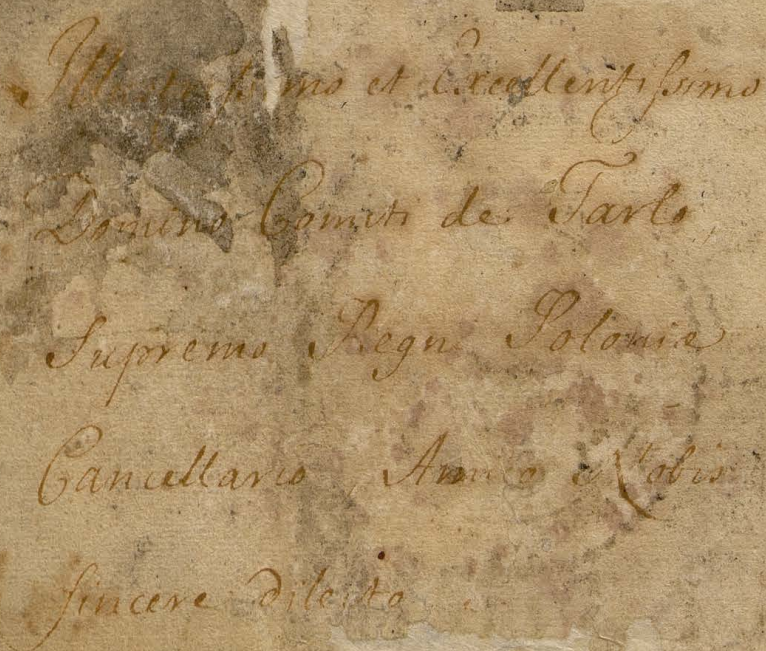 Illustrissimo et Excellentissimo
Domino Comiti de Tarlo,
Supremo Regni Polonie
Cancellario, Amico Nobis
sincere dilecto